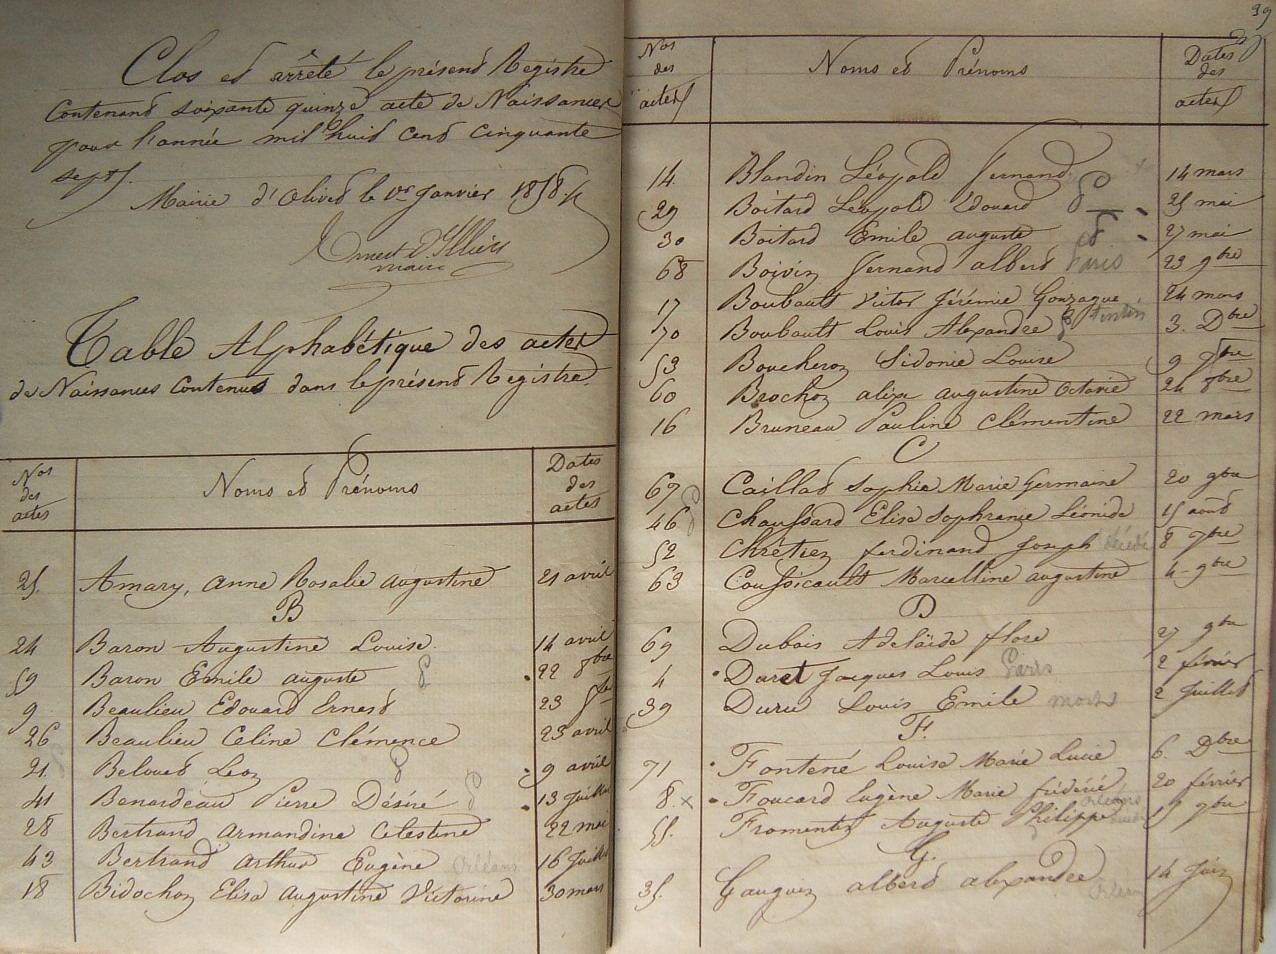 Clos et arrêté le présent Registre
Contenant soixante quinze acte de Naissances
pour l'année mil huit cent cinquante
sept.
Mairie d'Olivet le 1er Janvier 1858
Ernest d'Illiers
maire
Table Alphabétique des actes
de Naissances Contenus dans le présent Registre.
Nos des actes Noms et Prénoms Dates des actes
25. Amary, Anne Rosalie augustine 21 avril
B
24 Baron Augustine Louise. 14 avril
59 Baron Emile auguste 22 8bre
9 Beaulieu Edouard Ernest 23
26 Beaulieu Celine Clémence 23 avril
21. Beloued Leon 9 avril
41 Benardeau Pierre Désiré 13 Juillet
28 Bertrand armandine Celestine 22 mai
43 Bertrand arthur Eugène Orléans 16 Juillet
18 Bidochon Elisa augustine Victorine 30 mars
39
Nos des actes Noms et Prénoms Dates des actes
14. Blandin Léopold fernand 14 mars
29 Boitard Léopold Edouard 25 mai
30 Boitard Emile auguste 27 mai
68 Boivin fernand albert Paris 23 9bre
17 Boubault Victor Jérémie Gonzague 24 mars
70 Boubault Louis Alexandre 3. Dbre
53 Boucheron Sidonie Louise 9 7bre
60 Brochon alix augustine Octavie 24 8bre
16 Bruneau Pauline Clémentine 22 mars
C
67 Caillat Sophie Marie Germaine 20 9bre
46 Chaussard Elisa Sophranie Léonide 15 août
52 Chrétien ferdinand Joseph décédé 8 7bre
63 Coussicault Marcelline augustine 4 9bre
D
69 Dubois Adelaïde flore 27 9bre
4 Duret Jacques Louis Paris 2 février
39 Duru Louis Emile mort 2 Juillet
F.
71 Fontené Louise Marie Lucie 6. Dbre
8. x Foucard Eugène Marie frédéric 20 février
55. Fromentin Auguste Philippe 15 9bre
G.
35. Gauguin albert alexandre 14 Juin